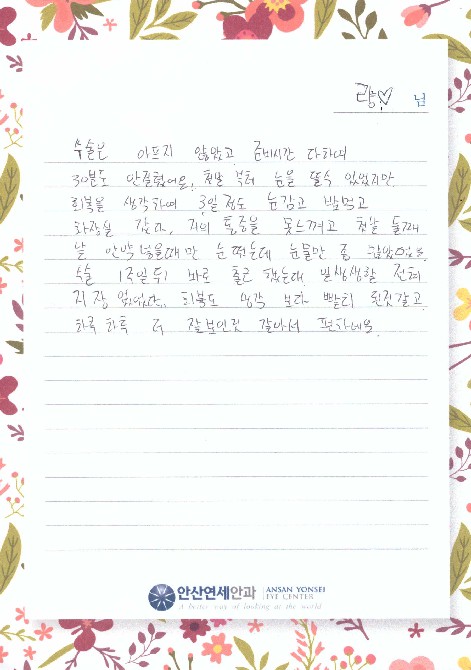 랑♡ 님
수술은 아프지 않았고 준비시간 다하여
30분도 안걸렸어요. 첫날 부터 눈을 뜰수 있었지만
회복을 생각하여 3일정도 눈감고 밥먹고
화장실 갔다. 거의 통증을 못느끼고 첫날 둘째
날 안약 넣을때만 눈 떴는데 눈물만 좀
수술 1주일 뒤 바로 출근 했는데 일상생활 전혀
지장 없었다. 회복도 생각 보다 빨리 된것같고
하루 하루 더 잘보인것 같아서 편하네요
안산연세안과 ANSAN YONSEI EYE CENTER
A better way of looking at the world